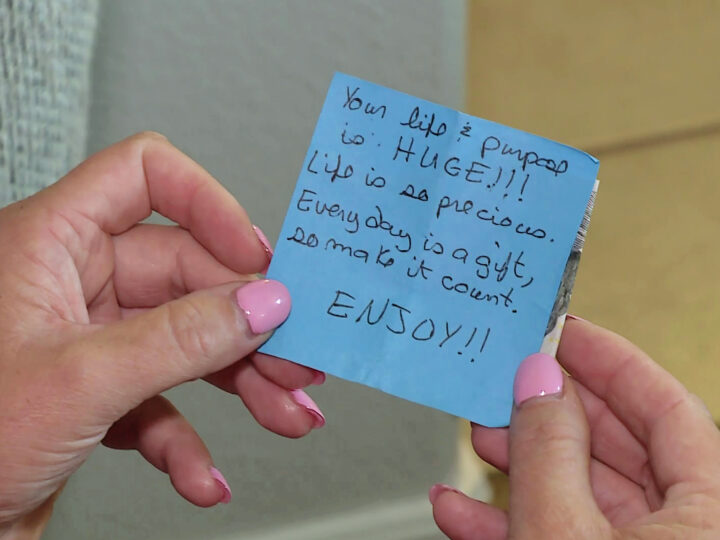 Your life & purpose
is HUGE!!!
Life is so precious.
Every day is a gift,
so make it count.
ENJOY!!